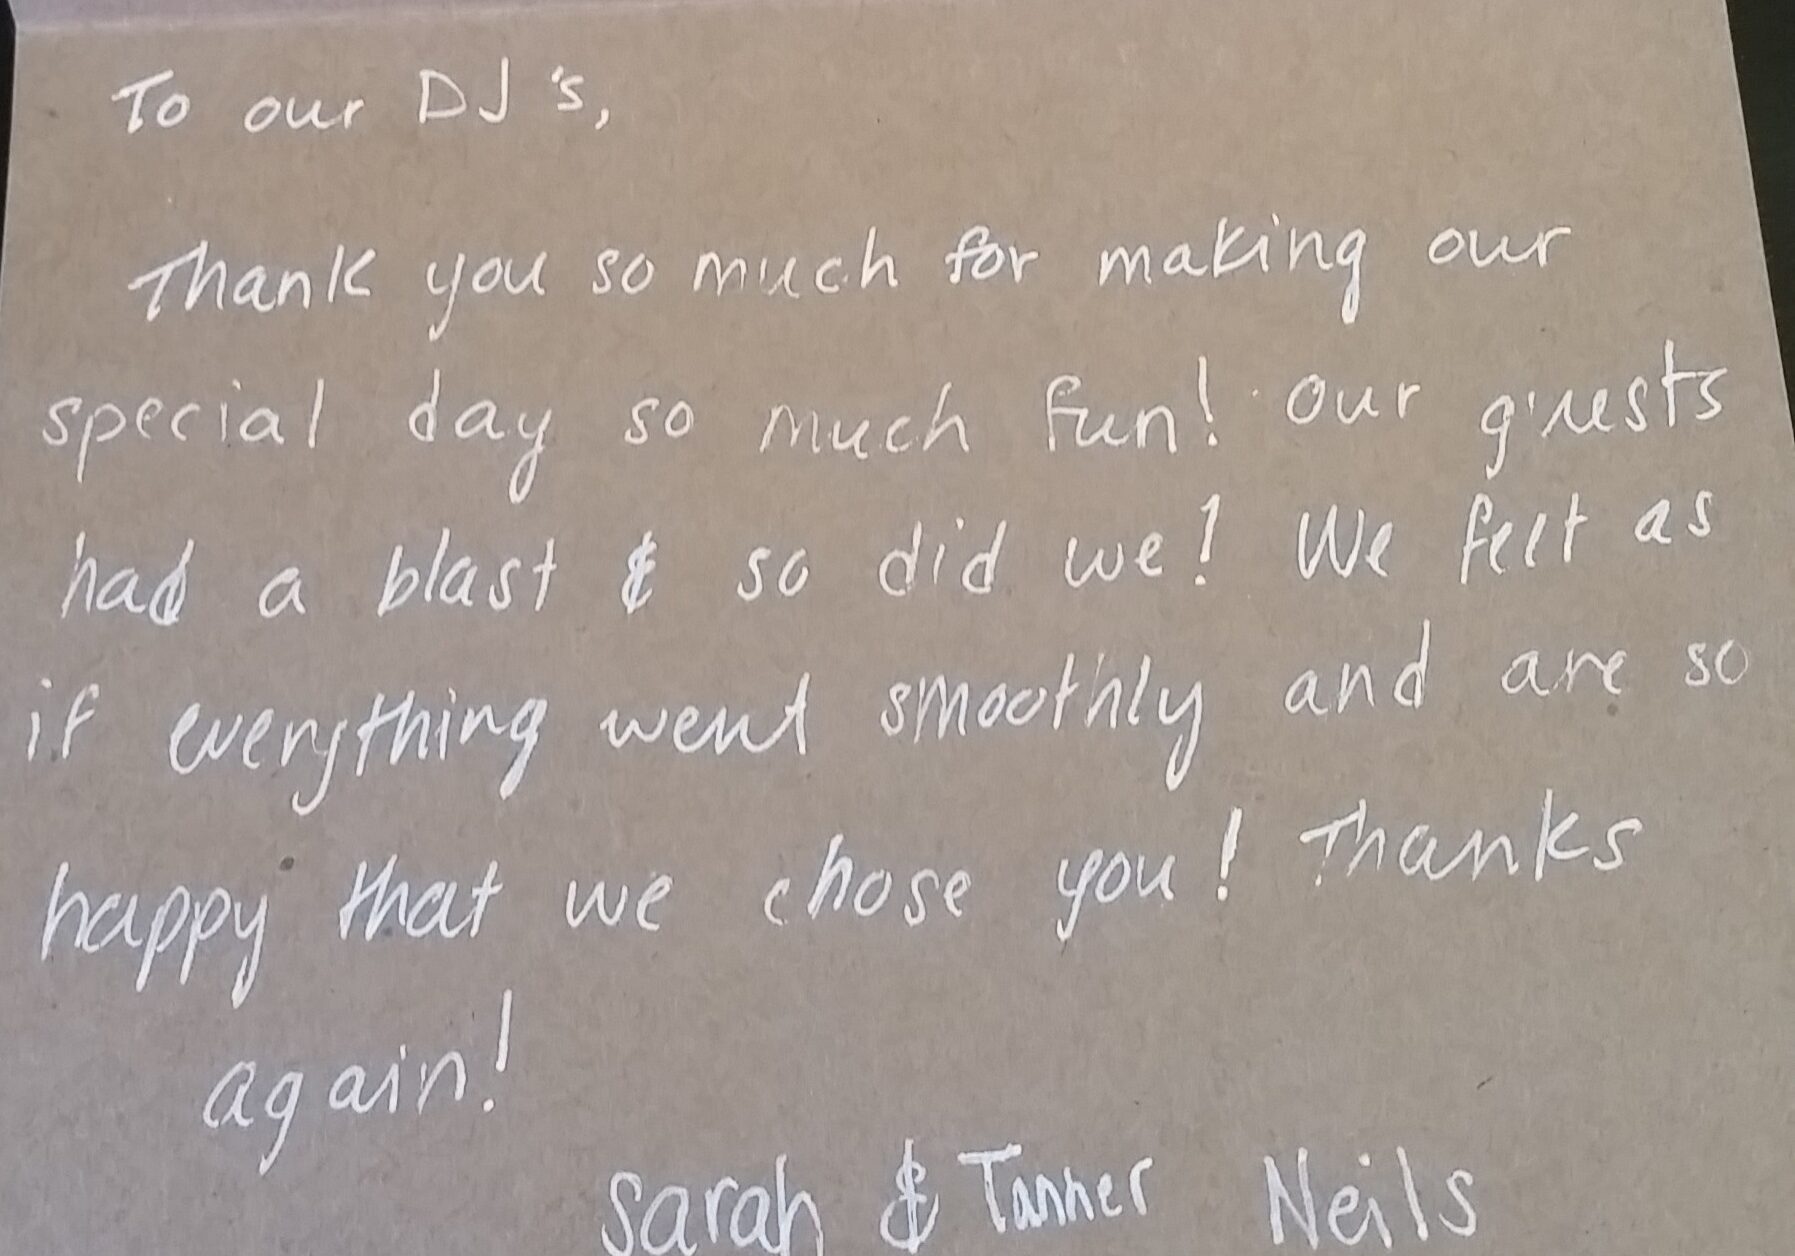 To our DJ's,
Thank you so much for making our
special day so much fun! Our guests
had a blast & so did we! We felt as
if everything went smoothly and are so
happy that we chose you! Thanks
again!
Sarah & Tanner Neils